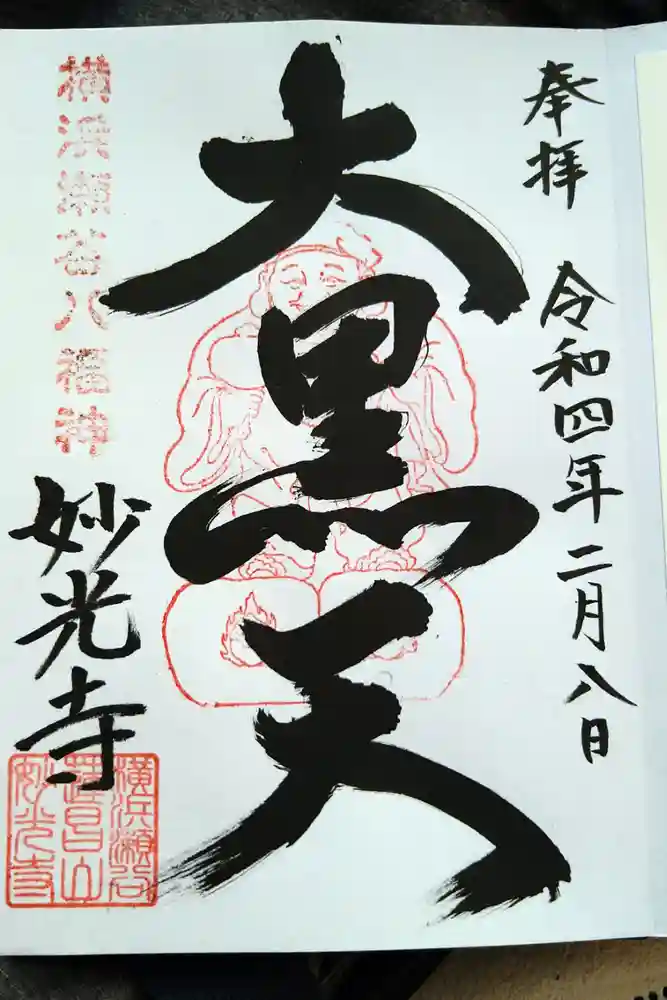 奉拝
令和四年二月八日
大黒天
横浜瀬谷八福神
妙光寺
横浜瀬谷
蓮昌山
妙光寺